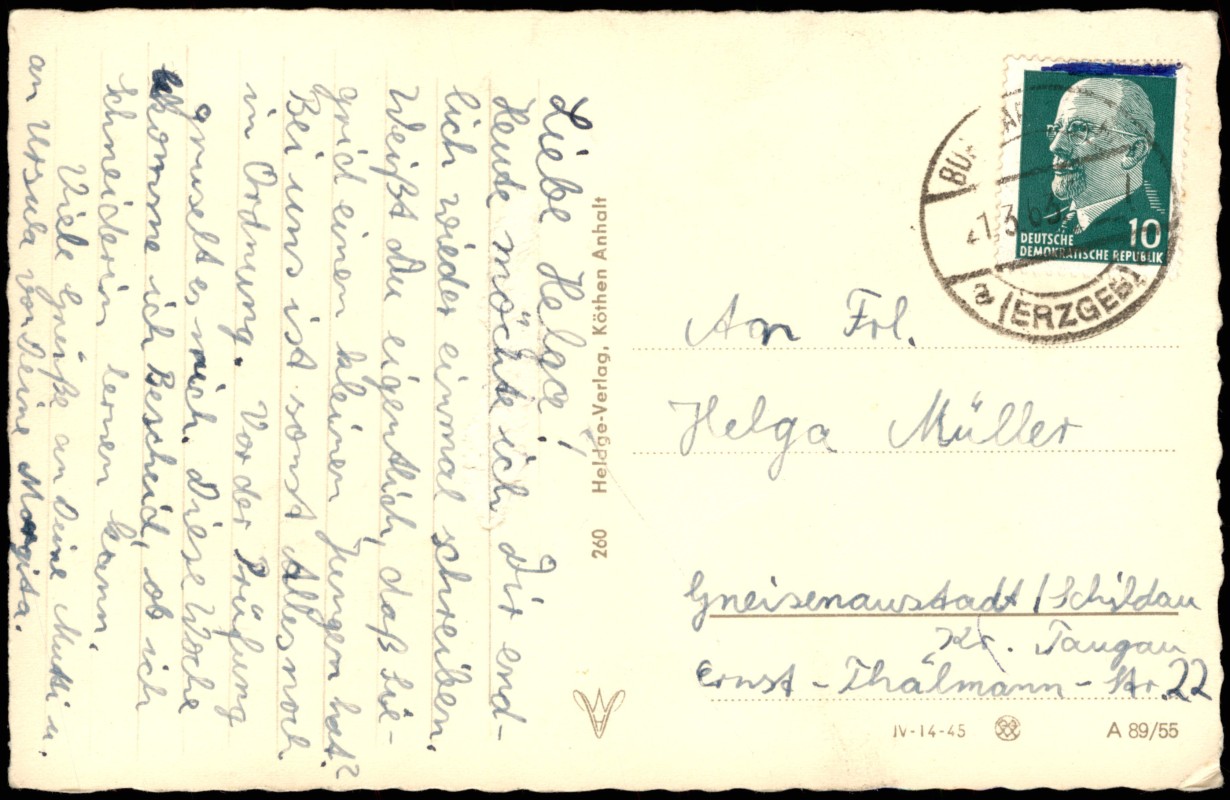 Liebe Helga!
Heute möchte ich Dir end-
lich wieder einmal schreiben.
Weißt Du eigentlich, daß Sie-
grid einen kleinen Jungen hat?
Bei uns ist sonst Alles noch
in Ordnung. Vor der Prüfung
gruselt es mich. Diese Woche
bekomme ich Bescheid, ob ich
Schneiderin lernen kann.
Viele Grüße an Deine Mutti u.
an Ursula von Deine Margita.
260 Heldge-Verlag, Köthen Anhalt
DEUTSCHE 10
DEMOKRATISCHE REPUBLIK
21.3.63
a (ERZGEB)
An Frl.
Helga Müller
Gneisenaustadt / Schildau
Kr. Taugau
Ernst-Thälmann-Str. 22
IV-14-45 A 89/55